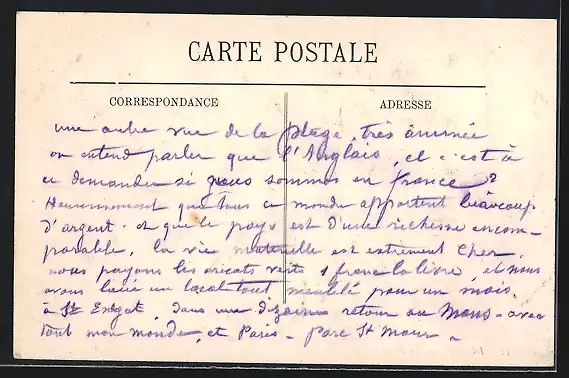 CARTE POSTALE
CORRESPONDANCE
ADRESSE
une autre vue de la plage, très animée
on entend parler que l'Anglais, et c'est à
ce demander si nous sommes en france?
Heureusement que tous ce monde apportent beaucoup
d'argent. et que le pays est d'une richesse incom-
parable, la vie materielle est extrement cher,
nous payons les aricots verts 1 franc la livre, et nous
avons loué un local tout meublé pour un mois.
à St dans une dizaine retour au Mans - avec
tout mon monde, et Paris - Parc St Maur -